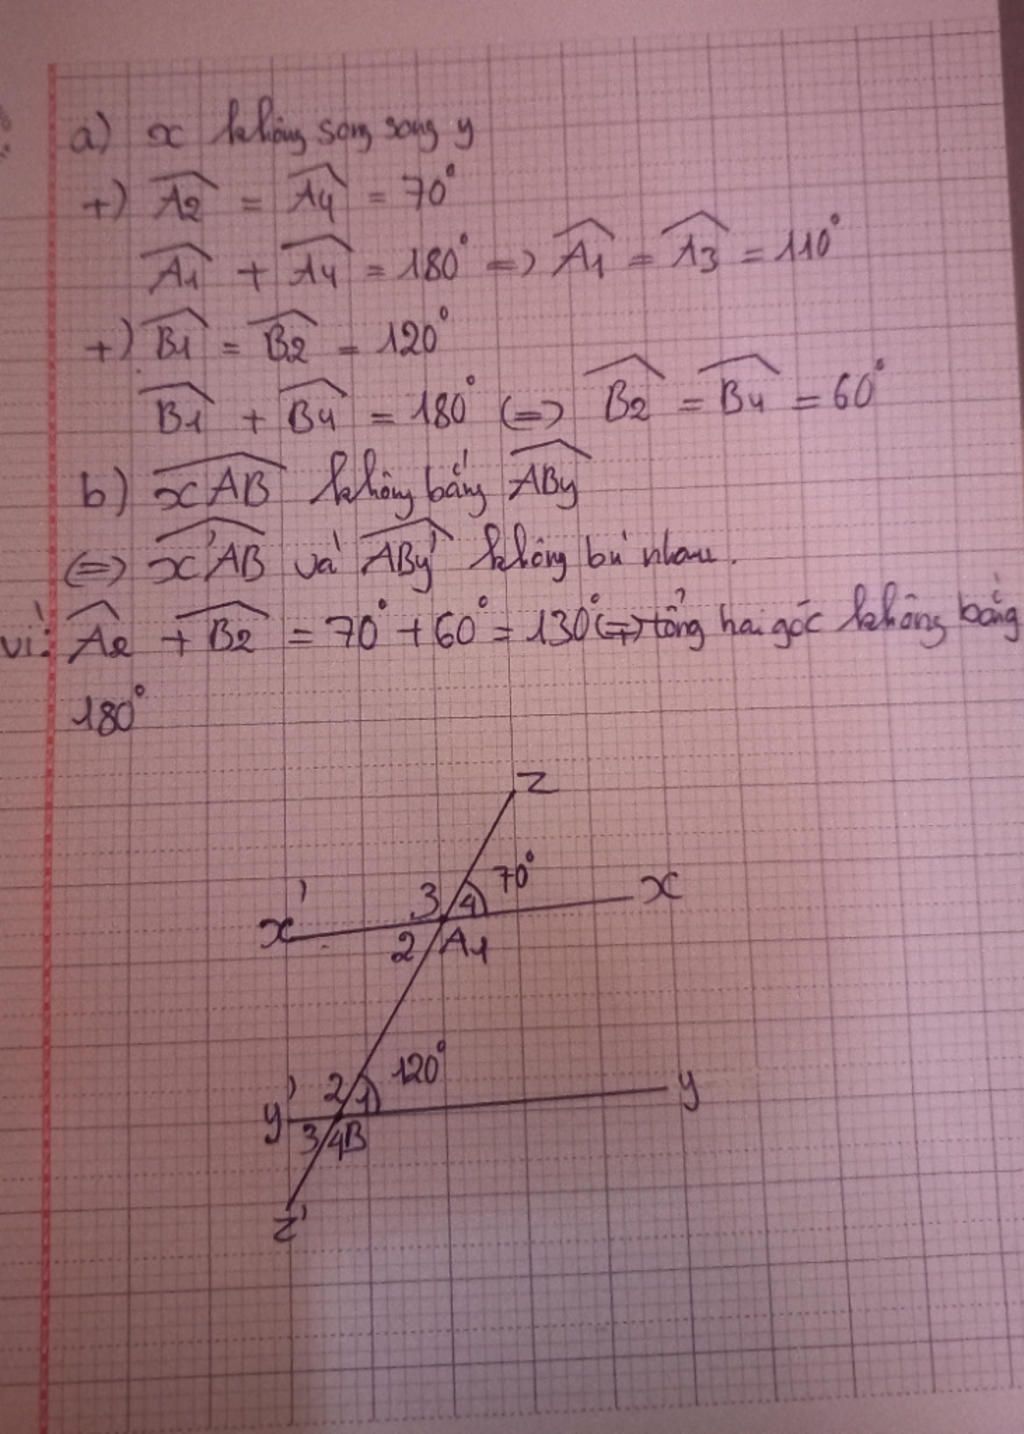 a) x không song song y
+) Â2 = Â4 = 70°
Â1 + Â4 = 180° => Â1 = Â3 = 110°
+) B̂1 = B̂2 = 120°
B̂1 + B̂4 = 180° (=>) B̂2 = B̂4 = 60°
b) xAB không bằng ABy
(=>) x'AB và ABy' không bù nhau.
vì: Â2 + B̂2 = 70° + 60° = 130° (=>) tổng hai góc không bằng
180°
z
3 4 70° x
x' 2 A1
2 1 120° y
y' 3 4B
z'